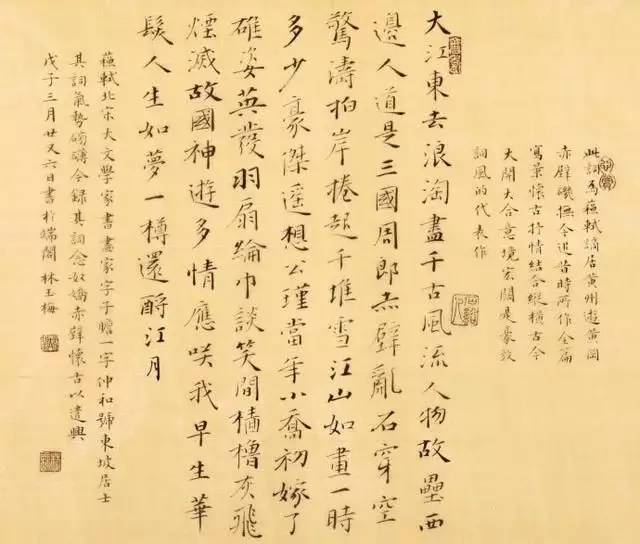 此詞為蘇軾謫居黃州遊黃岡
赤壁磯撫今追昔時所作全篇
寫景懷古抒情結合縱橫古今
大開大合意境宏闊屬豪放
詞風的代表作
大江東去浪淘盡千古風流人物故壘西
邊人道是三國周郎赤壁亂石穿空
驚濤拍岸捲起千堆雪江山如畫一時
多少豪傑遙想公瑾當年小喬初嫁了
雄姿英發羽扇綸巾談笑間檣櫓灰飛
煙滅故國神遊多情應咲我早生華
髮人生如夢一樽還酹江月
蘇軾北宋大文學家書畫家字子瞻一字仲和號東坡居士
其詞氣勢磅礴今錄其詞念奴嬌赤壁懷古以遣興
戊子三月廿又六日書於端閣 林玉梅